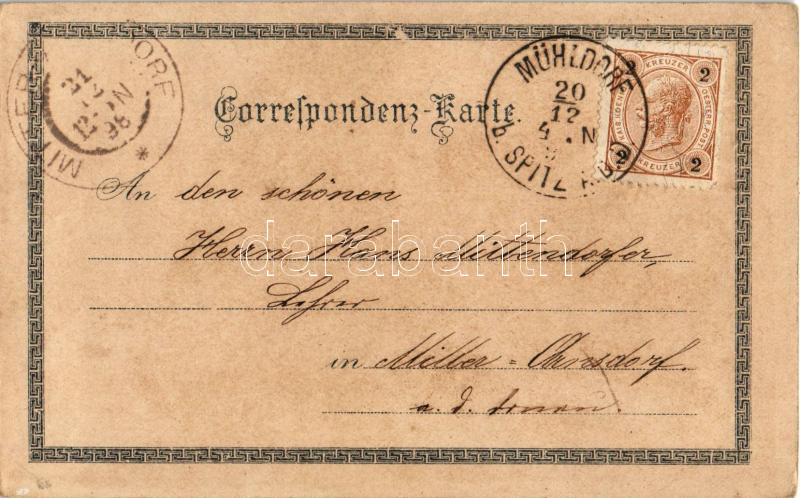 Correspondenz-Karte.
MÜHLDORF
20
12
4 N
b. SPITZ
2
KREUZER
2
KAIS. KÖN.
OESTERR. POST
2
KREUZER
2
21
12
12 N
98
An den schönen
Herrn Hans Mittendorfer,
Lehrer
in
a. d. Donau.
darabanth